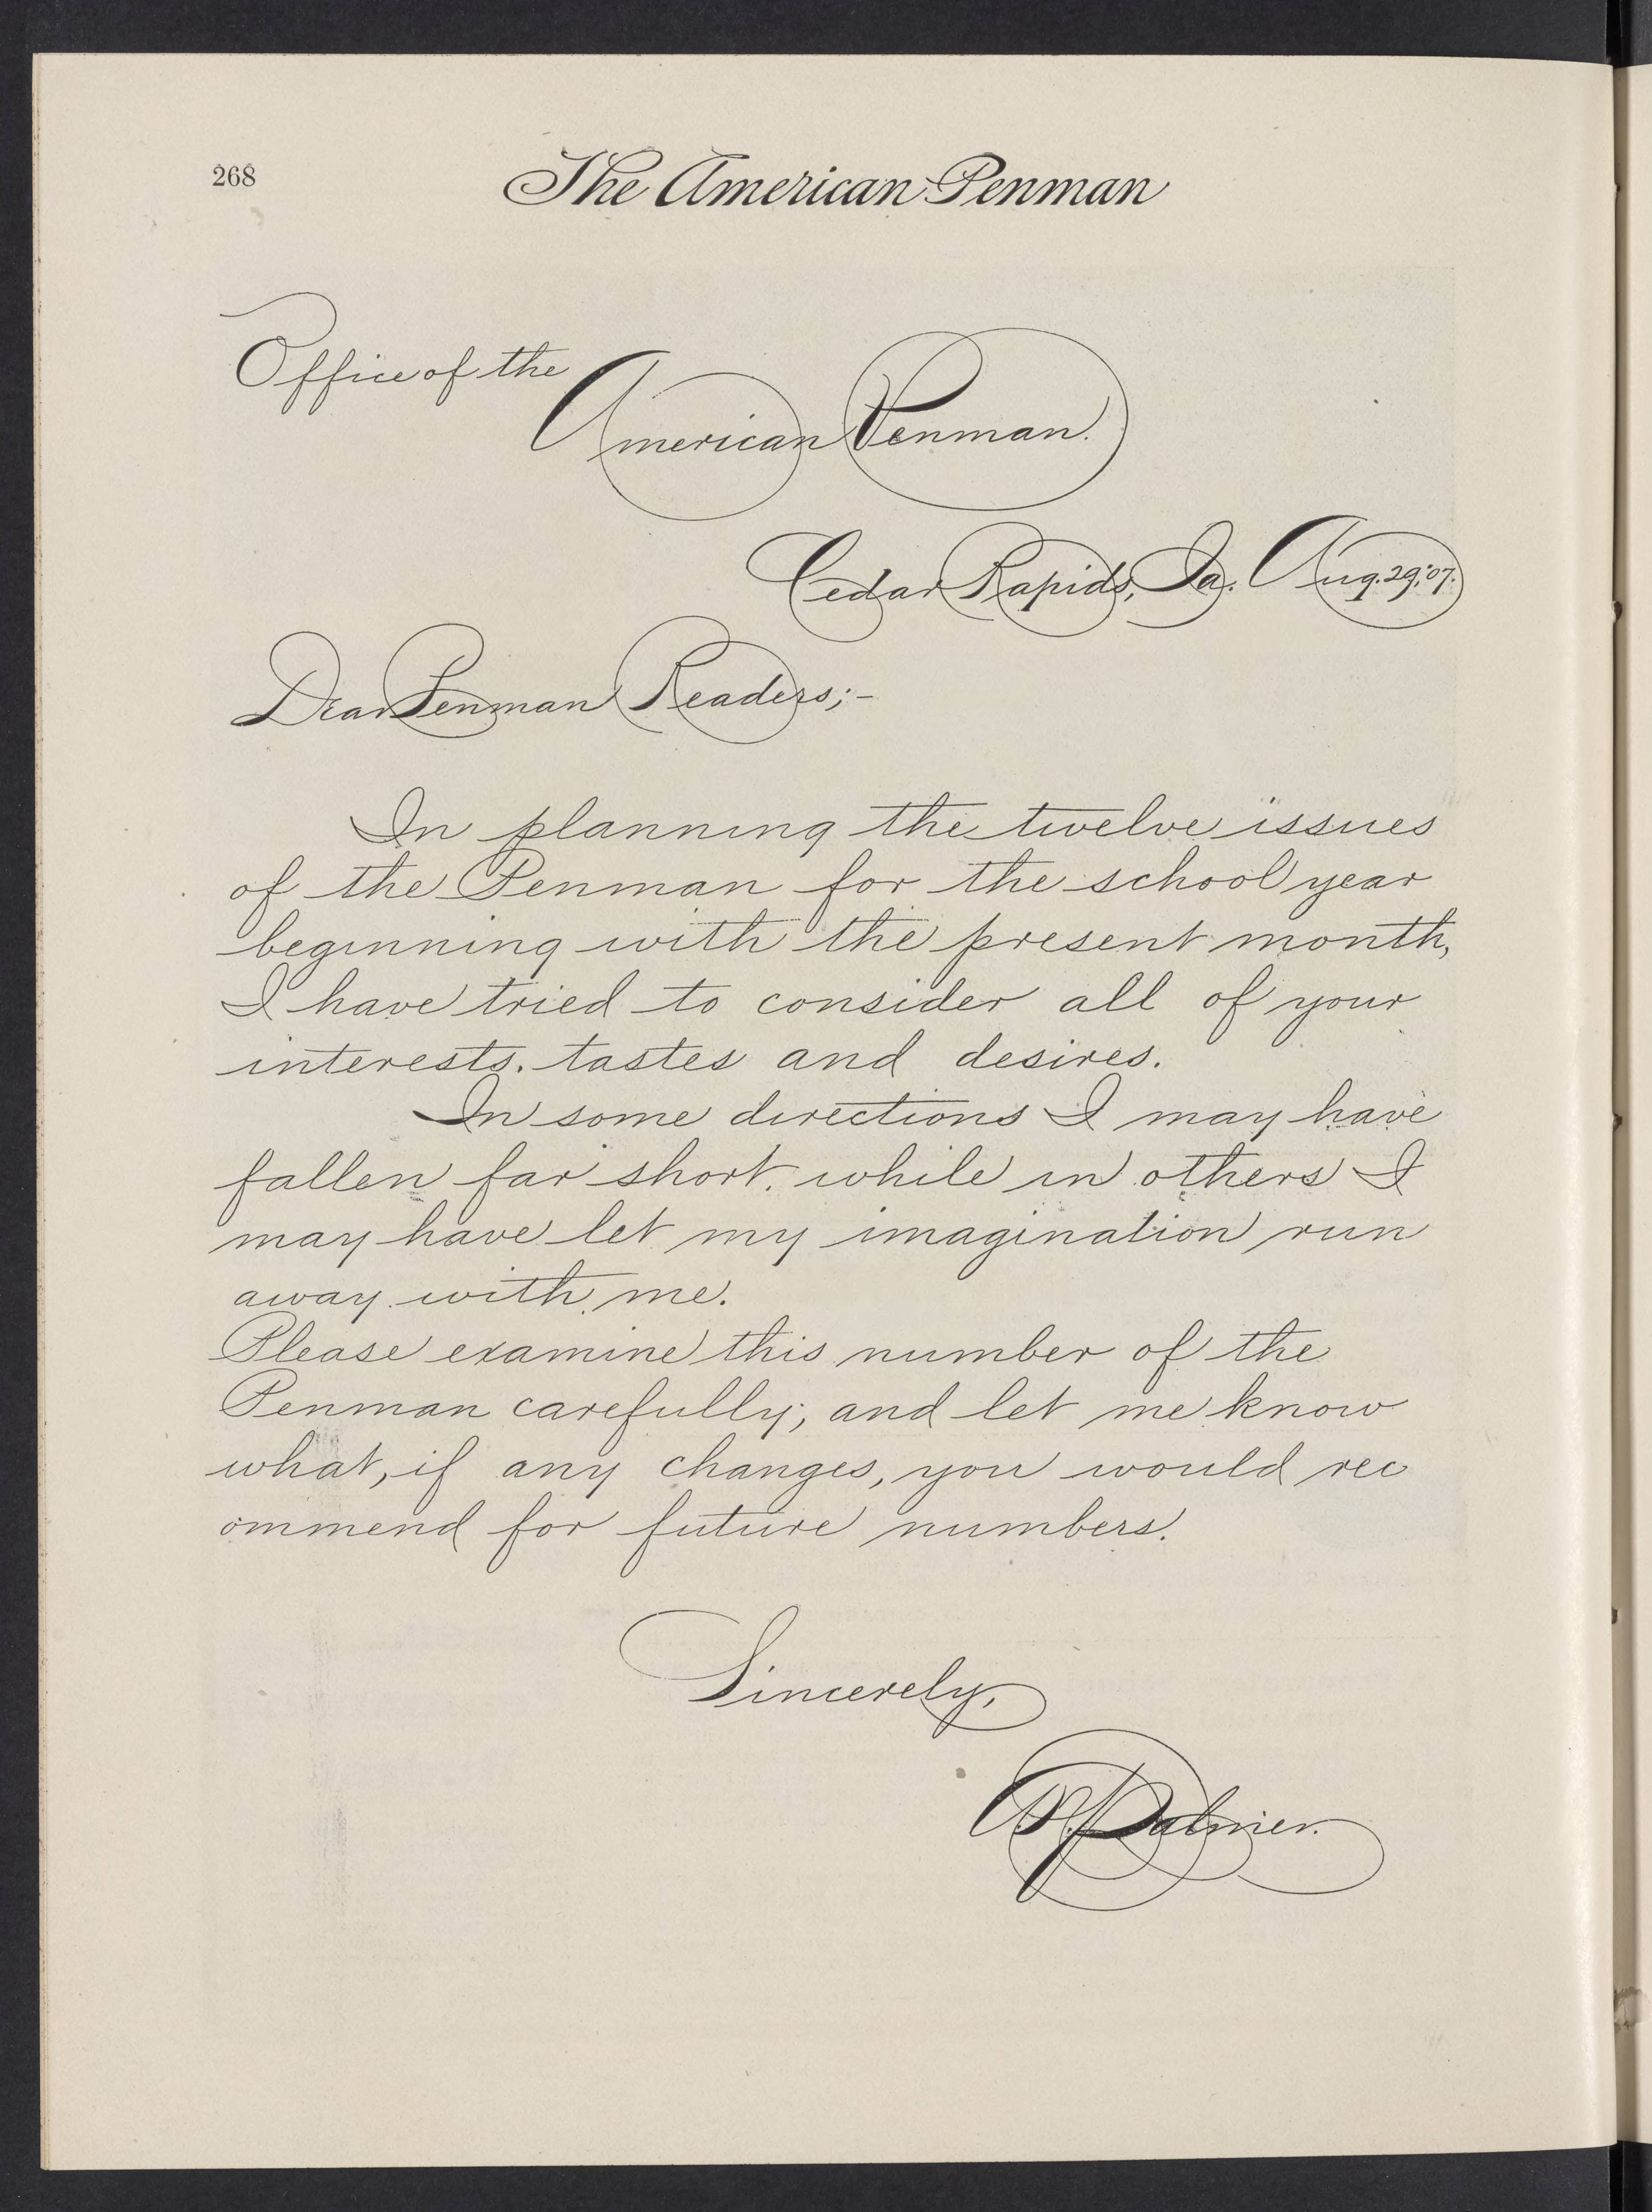 268
The American Penman
Office of the
American Penman.
Cedar Rapids, Ia. Aug. 29, '07.
Dear Penman Readers;-
In planning the twelve issues
of the Penman for the school year
beginning with the present month,
I have tried to consider all of your
interests. tastes and desires.
In some directions I may have
fallen far short. while in others I
may have let my imagination run
away with me.
Please examine this number of the
Penman carefully; and let me know
what, if any changes, you would rec
ommend for future numbers.
Sincerely,
A.N. Palmer.